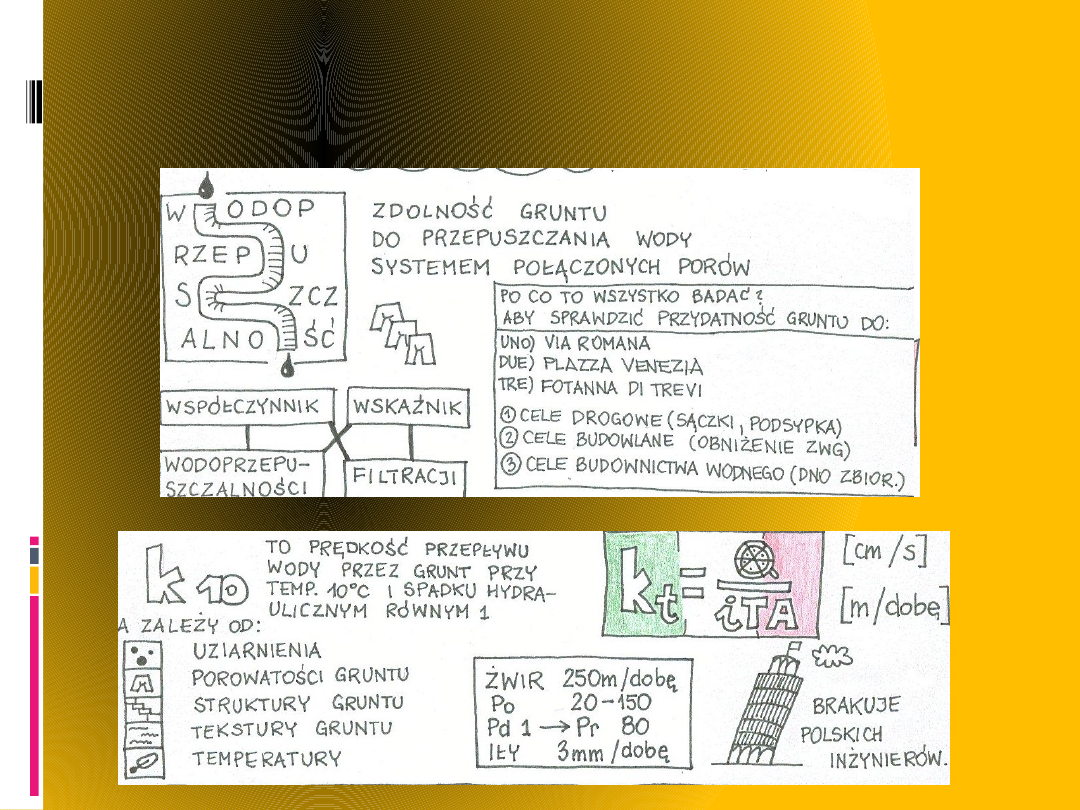 WODOP
RZEPU
SZCZ
ALNOŚĆ
ZDOLNOŚĆ GRUNTU
DO PRZEPUSZCZANIA WODY
SYSTEMEM POŁĄCZONYCH PORÓW
PO CO TO WSZYSTKO BADAĆ?
ABY SPRAWDZIĆ PRZYDATNOŚĆ GRUNTU DO:
UNO) VIA ROMANA
DUE) PLAZZA VENEZIA
TRE) FOTANNA DI TREVI
① CELE DROGOWE (SĄCZKI, PODSYPKA)
② CELE BUDOWLANE (OBNIŻENIE ZWG)
③ CELE BUDOWNICTWA WODNEGO (DNO ZBIOR.)
WSPÓŁCZYNNIK
WSKAŹNIK
WODOPRZEPU-
SZCZALNOŚCI
FILTRACJI
k10
TO PRĘDKOŚĆ PRZEPŁYWU
WODY PRZEZ GRUNT PRZY
TEMP. 10°C I SPADKU HYDRA-
ULICZNYM RÓWNYM 1
A ZALEŻY OD:
UZIARNIENIA
POROWATOŚCI GRUNTU
STRUKTURY GRUNTU
TEKSTURY GRUNTU
TEMPERATURY
kt=
iTA
[cm/s]
[m/dobę]
ŻWIR 250m/dobę
Po 20-150
Pd 1 → Pr 80
IŁY 3mm/dobę
BRAKUJE
POLSKICH
INŻYNIERÓW.